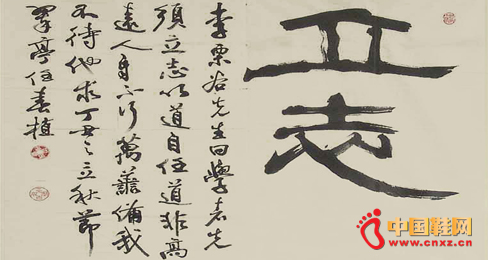 立志
李栗谷先生曰學者先
須立志以道自任道非高
遠人自不行萬善備我
不待他求丁丑之立秋節
翠亭任春植
中国鞋网
www.cnxz.cn